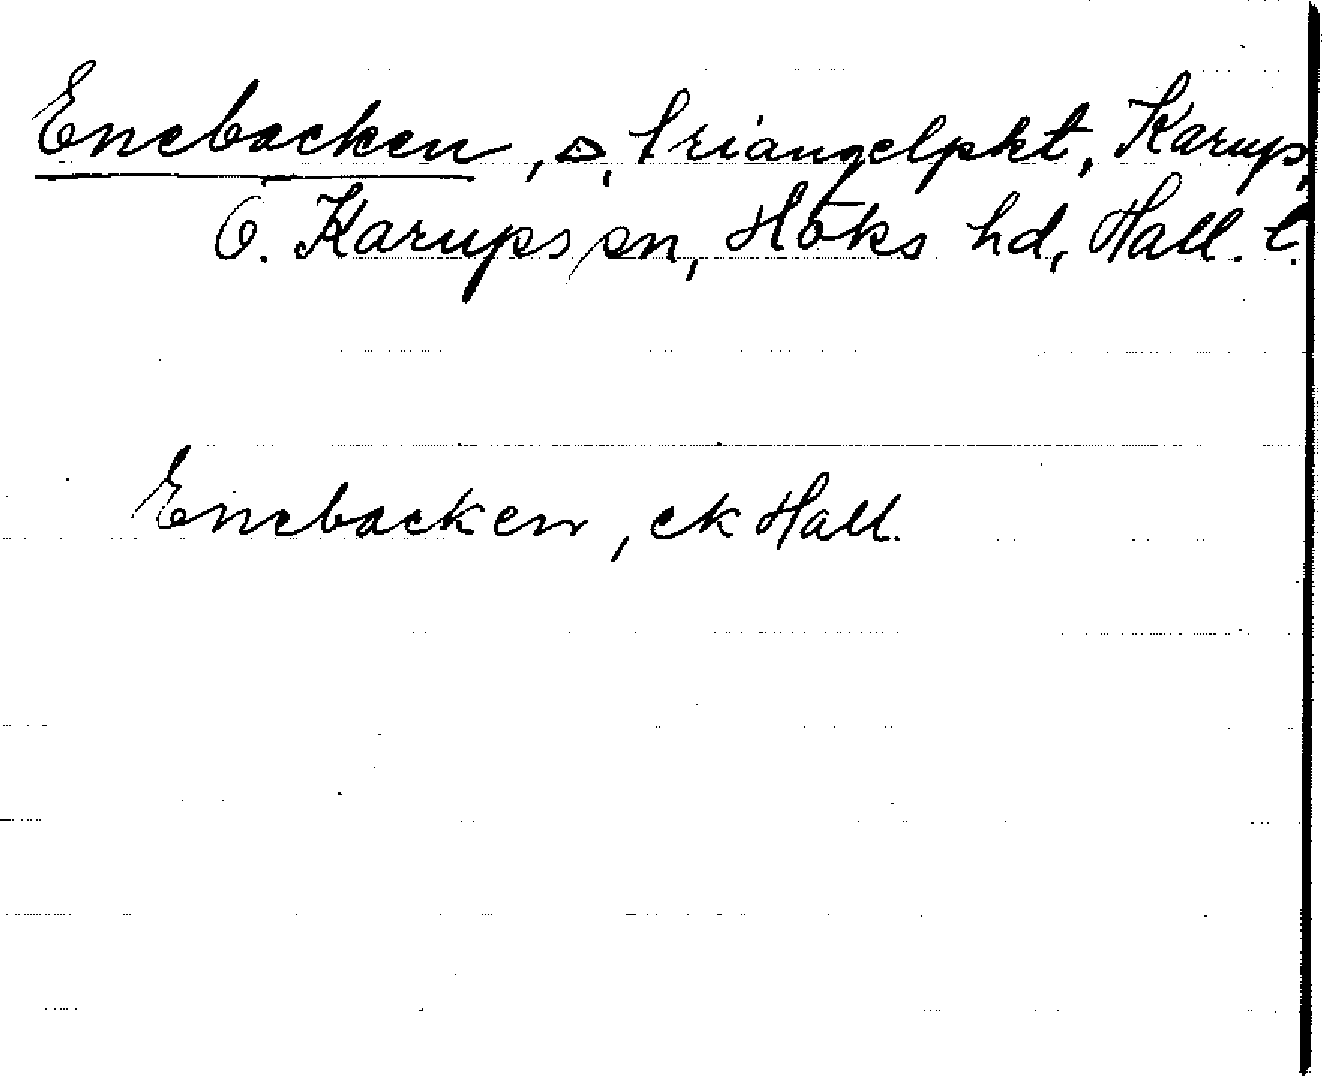 Enebacken, △, triangelpkt, Karup,
Ö. Karups sn, Höks hd, Hall. l.
Enebacken, ek Hall.